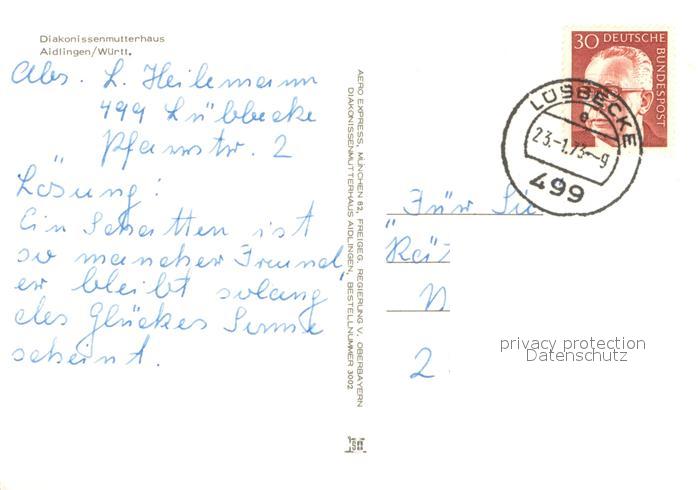 Diakonissenmutterhaus
Aidlingen/Württ.
Abs. L. Heilemann
499 Lübbecke
Pfarrstr. 2
Lösung:
Ein Schatten ist
so mancher Freund,
er bleibt solang
des Glückes Sonne
scheint.
AERO EXPRESS, MÜNCHEN 82, FREIGEG. REGIERUNG V. OBERBAYERN
DIAKONISSENMUTTERHAUS AIDLINGEN, BESTELLNUMMER 3002
30 DEUTSCHE
BUNDESPOST
LÜBBECKE
e
23.-1.73--9
499
"Für Sie
Rät
N
2
privacy protection
Datenschutz